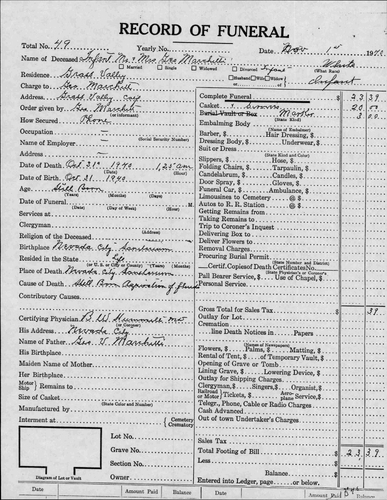 RECORD OF FUNERAL
Total No. 79 Yearly No. Date Nov 1st 1940
Name of Deceased Infant Mr. & Mrs. Geo Marshall White
Married Single Widowed Divorced (What Race)
Residence Grass Valley Husband Wife Widow of Infant
Charge to Geo. Marshall
Address Grass Valley
Order given by Geo. Marshall
(or informant)
How Secured Phone
Occupation —
(Social Security Number)
Name of Employer
Address —
Date of Death Oct 31st 1940 1,25 am
Date of Birth Oct 31 1940
Age Still Born
(Years) (Months) (Days)
Date of Funeral
(Date) (Day of Week) (Hour)
Services at
Clergyman
Religion of the Deceased
Birthplace Nevada City Sanitarium
Resided in the State
(or U. S. City or County) (Years) (Months) (Days)
Place of Death Nevada City Sanitarium
Cause of Death Still Born
Contributory Causes
Certifying Physician B. W. Hummelt MD
(or Coroner)
His Address Nevada City
Name of Father Geo. V. Marshall
His Birthplace
Maiden Name of Mother
Her Birthplace
Motor Ship Remains to
Size of Casket
(State Color and Number)
Manufactured by
Interment at Cemetery Crematory
Lot No.
Grave No.
Section No.
Owner
Diagram of Lot or Vault
Complete Funeral $ 23 39
Casket & Services 20 00
Burial Vault or Box 3 00
(Name of Embalmer)
Embalming Body
Barber, $ Hair Dressing, $
Dressing Body, $ Underwear, $
Suit or Dress
(State Kind and Color)
Slippers, $ Hose, $
Folding Chairs, $ Tarpaulin, $
Candelabrum, $ Candles, $
Door Spray, $ Gloves, $
Funeral Car, $ Ambulance, $
Limousines to Cemetery @ $
Autos to R. R. Station @ $
Getting Remains from
Taking Remains to
Trip to Coroner's Inquest
Delivering Box to
Deliver Flowers to
Removal Charges
Procuring Burial Permit
(State Number and District)
Certif. Copies of Death Certificates No.
(State Physician's or Coroner's)
Pall Bearer Service, $ Use of Chapel, $
Personal Service
Gross Total for Sales Tax $ 39
Outlay for Lot
Cremation
line Death Notices in Papers
(Name of Newspapers)
Flowers, $ Palms, $ Matting, $
Rental of Tent, $ of Temporary Vault, $
Opening of Grave or Tomb
Lining Grave, $ Lowering Device, $
Outlay for Shipping Charges
Clergyman, $ Singers, $ Organist, $
Railroad Motor $ Tickets, $ Aeroplane Service, $
Telegr., Phone, Cable or Radio Charges
Cash Advanced
Out of town Undertaker's Charges
Sales Tax
Total Footing of Bill $ 23 39
Less $
Balance $
Entered into Ledger, page or below.
Date Amount Paid Balance Date Amount Paid Balance